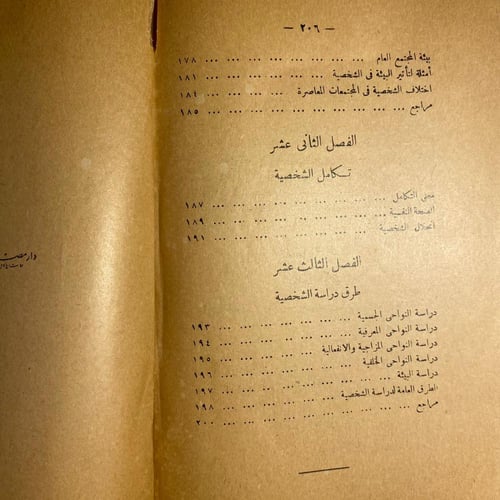 — ٢٠٦ —
بيئة المجتمع العام ... ... ... ... ... ... ... ... ١٧٨
أمثلة لتأثير البيئة فى الشخصية ... ... ... ... ... ... ١٨١
اختلاف الشخصية فى المجتمعات المعاصرة ... ... ... ... ١٨٤
مراجع ... ... ... ... ... ... ... ... ... ... ١٨٥
الفصل الثانى عشر
تكامل الشخصية
معنى التكامل ... ... ... ... ... ... ... ... ١٨٧
الصحة النفسية ... ... ... ... ... ... ... ... ١٨٩
انحلال الشخصية ... ... ... ... ... ... ... ... ١٩١
الفصل الثالث عشر
طرق دراسة الشخصية
دراسة النواحى الجسمية ... ... ... ... ... ... ... ١٩٣
دراسة النواحى المعرفية ... ... ... ... ... ... ... ١٩٤
دراسة النواحى المزاجية والانفعالية ... ... ... ... ... ١٩٥
دراسة النواحى الخلقية ... ... ... ... ... ... ... ١٩٦
دراسة البيئة ... ... ... ... ... ... ... ... ١٩٧
الطرق العامة لدراسة الشخصية ... ... ... ... ... ... ١٩٨
مراجع ... ... ... ... ... ... ... ... ... ٢٠٠
دار